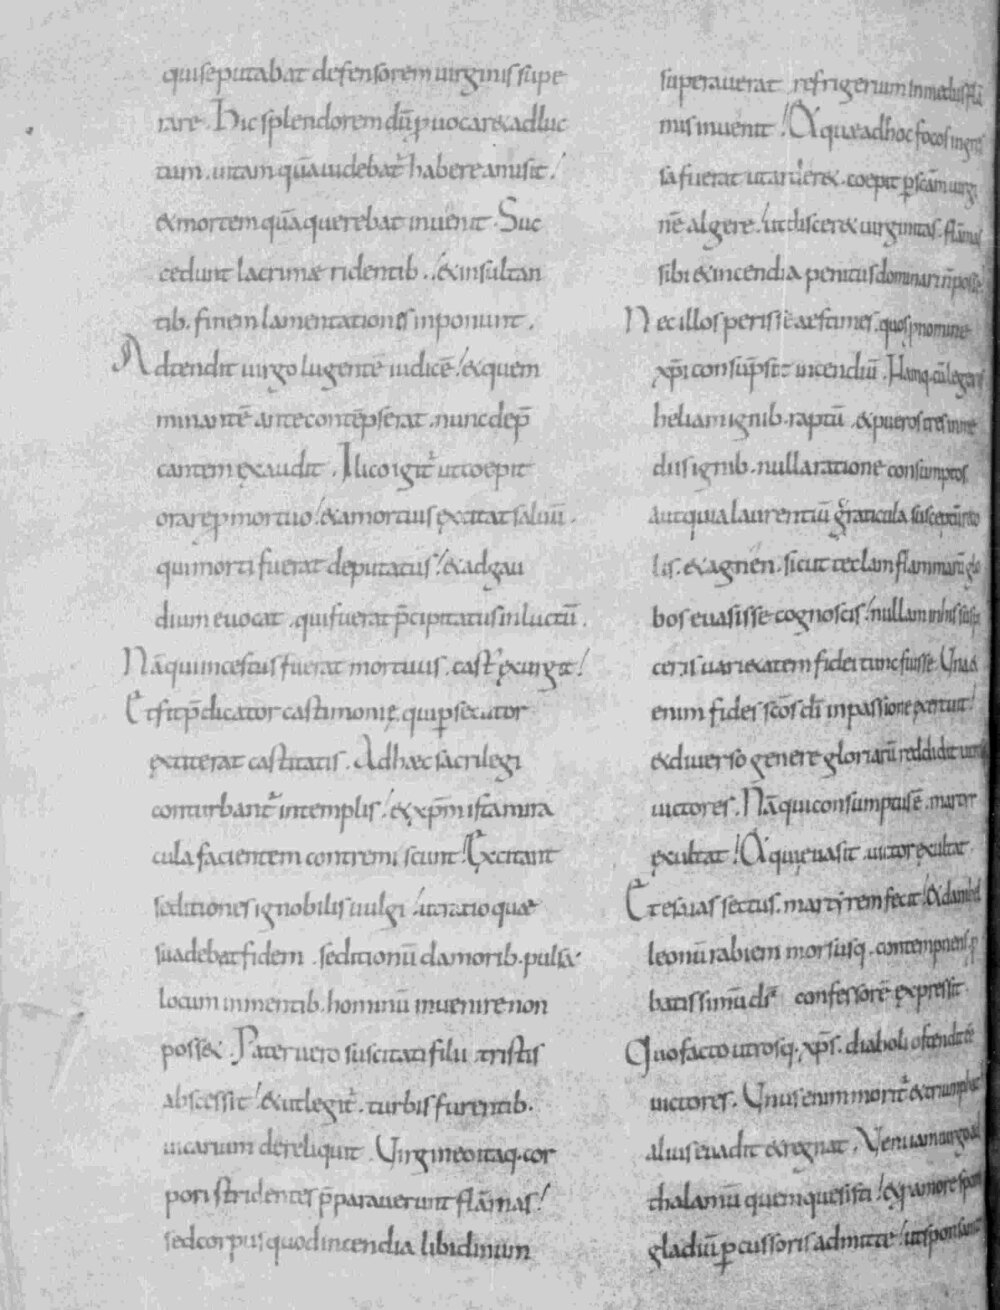 quiseputabat defensorem uirginis supe
rare. Hic splendorem dū puocar& adluc
tum. uitam quā uidebat habere amisit.
& mortem quā querebat inuenit. Suc
cedunt lacrimæ ridentib. & insultan
tib. finem lamentationis inponunt.
Adtendit uirgo lugentē iudicē. & quem
minantē ante contēpserat. nunc dep̄
cantem exaudit. Ilico igit ut coepit
orare p mortuo. & a mortuis excitat saluū.
qui morti fuerat deputatus. & ad gau
dium euocat. qui fuerat p̄cipitatus in luctū.
Nā qui incestus fuerat mortuus. cast' exurgit.
Et fit p̄dicator castimonię. qui psecutor
extiterat castitatis. Ad hæc sacrilegi
conturbant in templis. & xp̄m ista mira
cula facientem contremiscunt. Excitant
seditiones ignobilis uulgi. ut ratio quæ
suadebat fidem. seditionū clamorib. pulsa
locum in mentib. hominū inuenire non
poss&. Pater uero suscitati filii tristis
abscessit. & ut legit. turbis furentib.
uicarium dereliquit. Uirgineo itaq. cor
pori stridentes p̄parauerunt flāmas.
sed corpus quod incendia libidinum
superauerat refrigerium in mediis flā
mis inuenit. At quæ ad hoc focos ingres
sa fuerat ut arder&. coepit p scām uirgi
nē algere. ut discer& uirginitas. flāmas
sibi & incendia penitus dominari n̄ posse
Nec illos perisse aestimes. quos p nomine
xp̄i consūpsit incendiū. Namq. cū legeris
heliam ignib. raptū. & pueros tres in me
diis ignib. nulla ratione consumptos,
aut quia laurentiū graticula susceptū
lis. & agnen. sicut teclam flammarū glo
bos euasisse cognoscis. nullam in his suspi
ceris uari&atem fidei tunc fuisse. Una
enim fides scōs dī in passione
& diuerso genere gloriarū reddidit
uictores. Nā qui consumptus ē. martyr
exultat. At qui euasit. uictor exultat.
Et esaias sectus. martyrem fecit. & daniel
leonū rabiem morsusq. contempnens. p
batissimū dī confessorē expressit.
Quo facto utrosq. xp̄s. diaboli ostendit ēē
uictores. Unus enim morit & triumphat
alius euadit & regnat. Veni iam uirgo ad
thalamū quem quesisti. & p amore sponsi
gladiū pcussoris admitte. ut sponsam